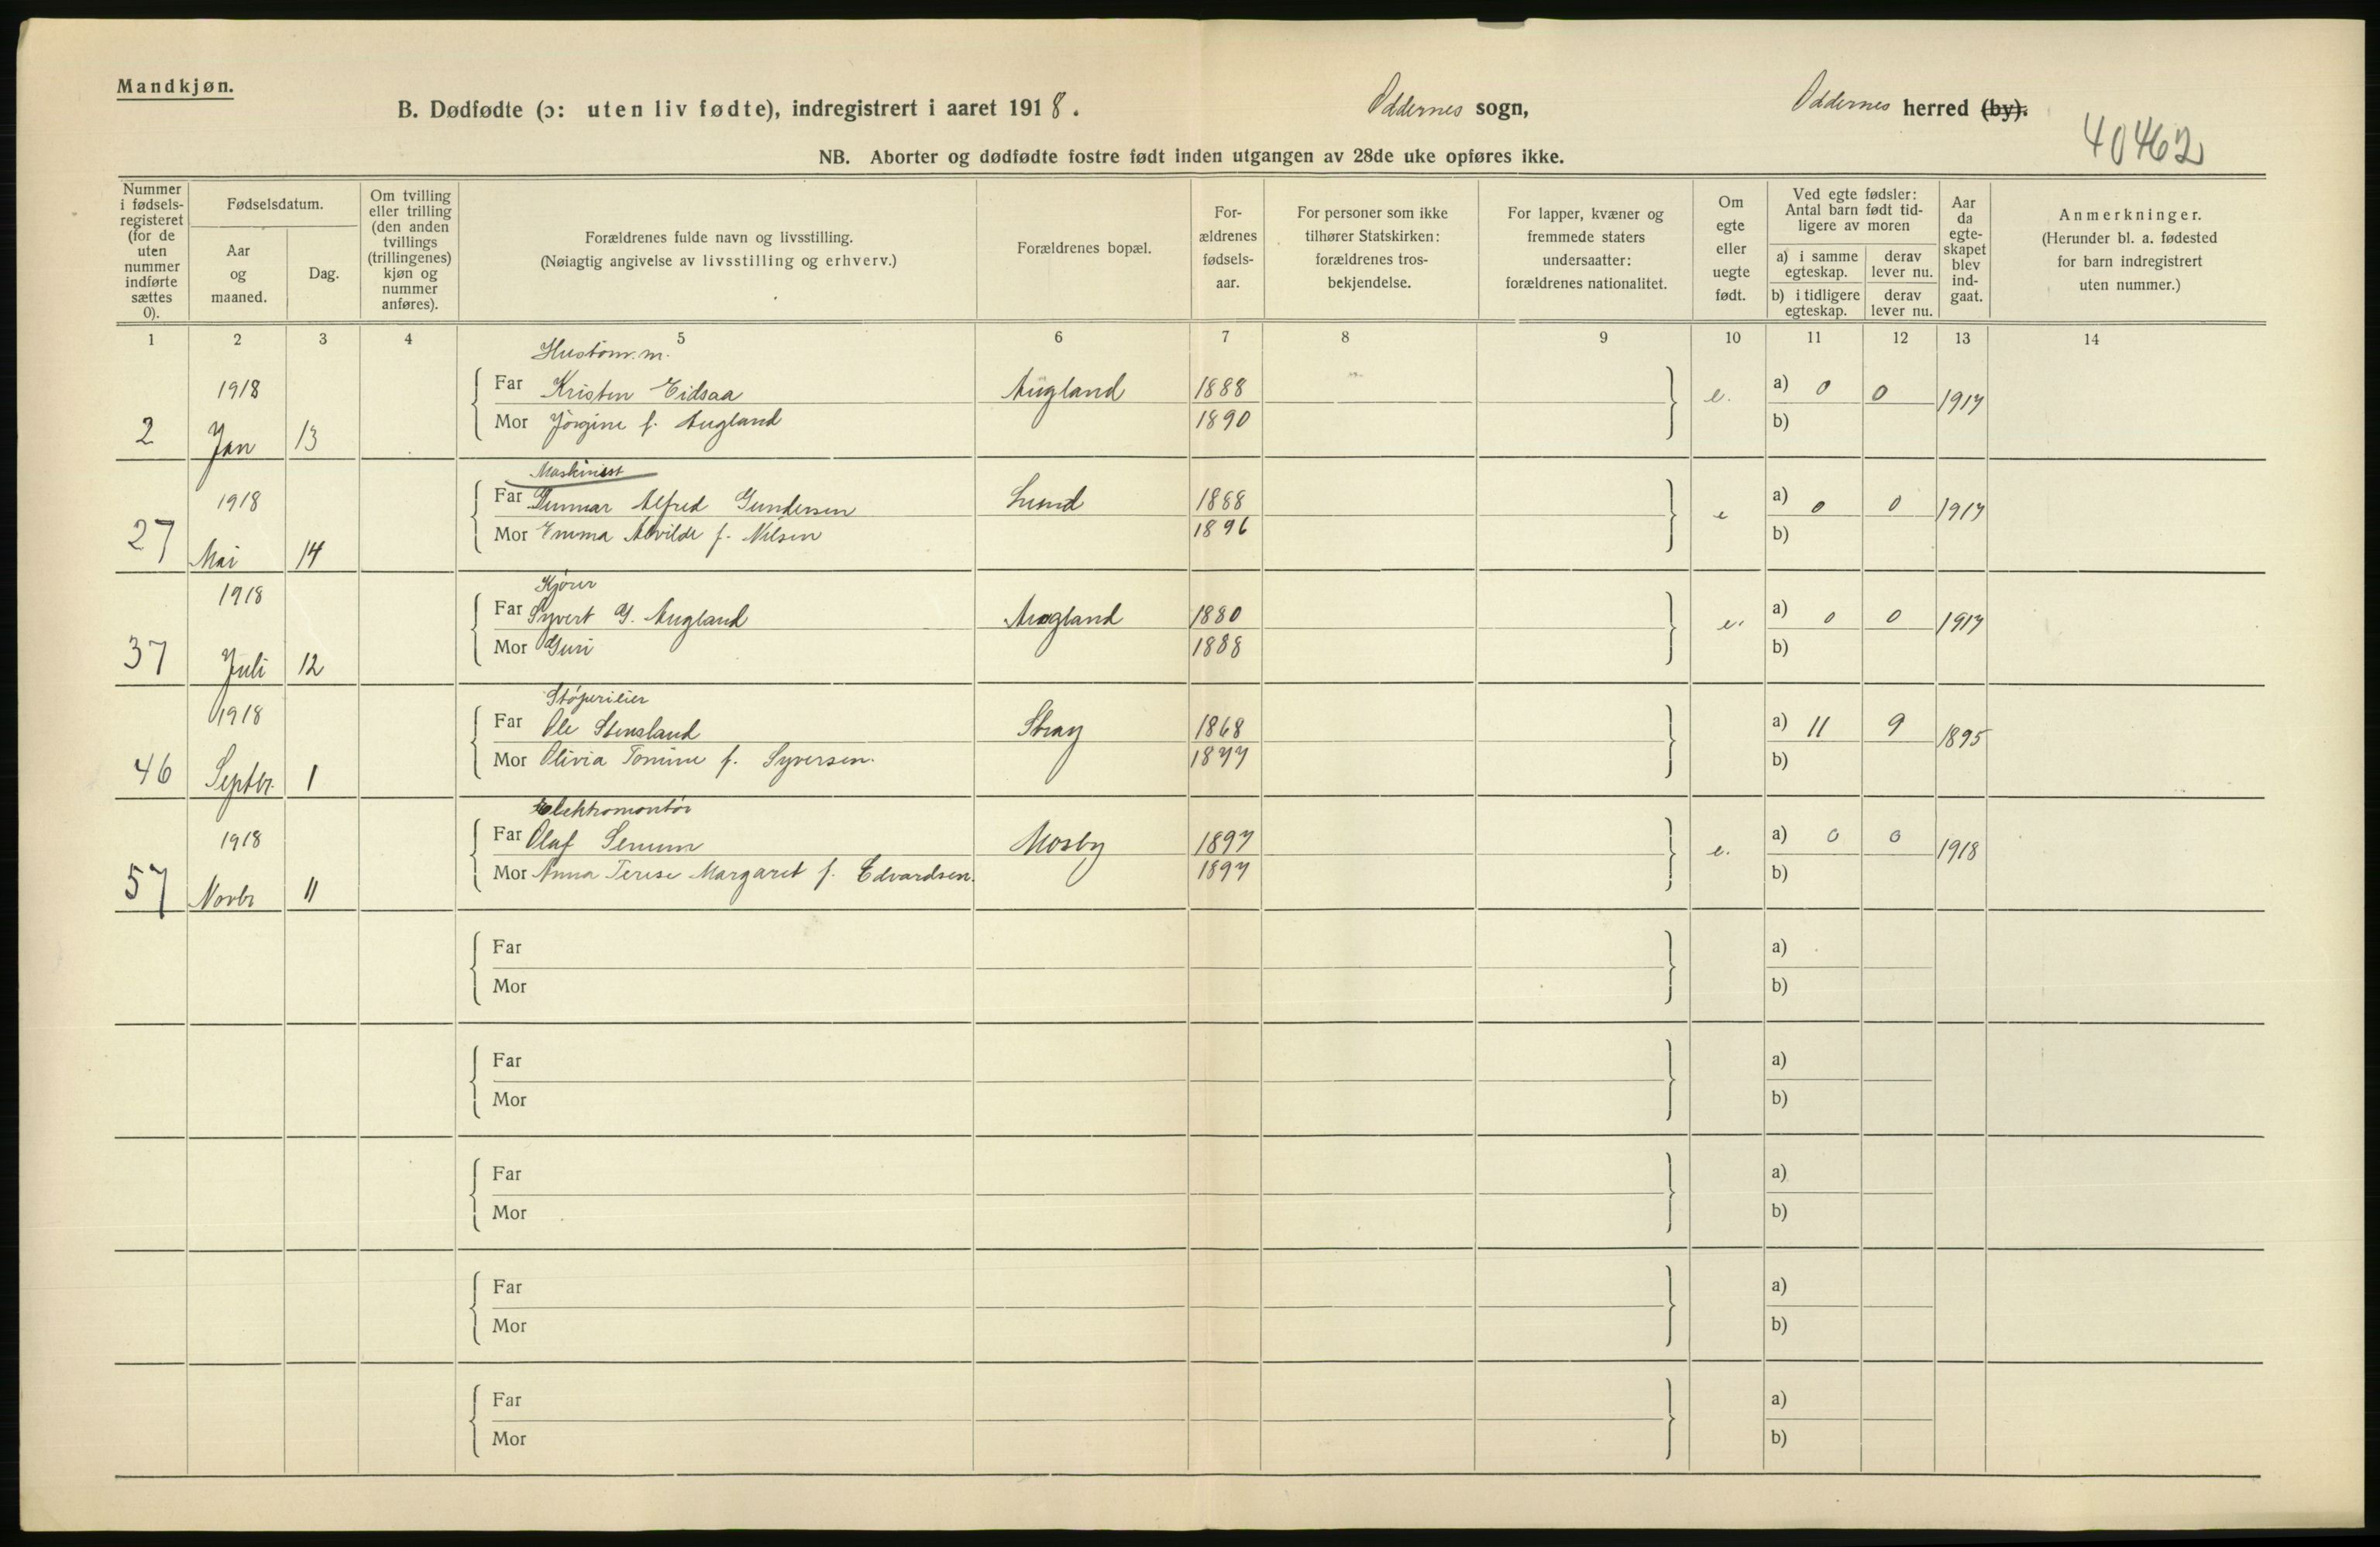 Mandkjøn.
B. Dødfødte (ɔ: uten liv fødte), indregistrert i aaret 1918. Oddernes sogn, Oddernes herred (by).
40462
NB. Aborter og dødfødte fostre født inden utgangen av 28de uke opføres ikke.
Nummer i fødsels-registeret (for de uten nummer indførte sættes 0).
Fødselsdatum.
Aar og maaned.
Dag.
Om tvilling eller trilling (den anden tvillings (trillingenes) kjøn og nummer anføres).
Forældrenes fulde navn og livsstilling.
(Nøiagtig angivelse av livsstilling og erhverv.)
Forældrenes bopæl.
For-ældrenes fødsels-aar.
For personer som ikke tilhører Statskirken: forældrenes tros-bekjendelse.
For lapper, kvæner og fremmede staters undersaatter: forældrenes nationalitet.
Om egte eller uegte født.
Ved egte fødsler: Antal barn født tid-ligere av moren
a) i samme egteskap. derav lever nu.
b) i tidligere egteskap. derav lever nu.
Aar da egte-skapet blev ind-gaat.
Anmerkninger.
(Herunder bl. a. fødested for barn indregistrert uten nummer.)
1 2 3 4 5 6 7 8 9 10 11 12 13 14
Hustøm. m.
1918 Far Kristen Eidsaa Augland 1888 e. a) 0 0 1917
2 Jan 13 Mor Jørgine f. Augland 1890 b)
Maskinist
1918 Far Gunnar Alfred Gundersen Lund 1888 e a) 0 0 1917
27 Mai 14 Mor Emma Alvilde f. Nilsen 1896 b)
Kjører
1918 Far Syvert G. Augland Augland 1880 e. a) 0 0 1917
37 Juli 12 Mor Guri 1888 b)
1918 Far Ole Stensland Stray 1868 a) 11 9 1895
46 Septbr. 1 Mor Olivia Tomine f. Syversen. 1877 b)
Elektromontør
1918 Far Olaf Senum Mosby 1897 e. a) 0 0 1918
57 Novbr 11 Mor Anna Terese Margaret f. Edvardsen. 1897 b)
Far a)
Mor b)
Far a)
Mor b)
Far a)
Mor b)
Far a)
Mor b)
Far a)
Mor b)